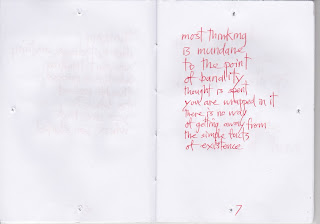 most thinking
is mundane
to the point
of banality
thought is spent
you are wrapped in it
there is no way
of getting away from
the simple facts
of existence
7